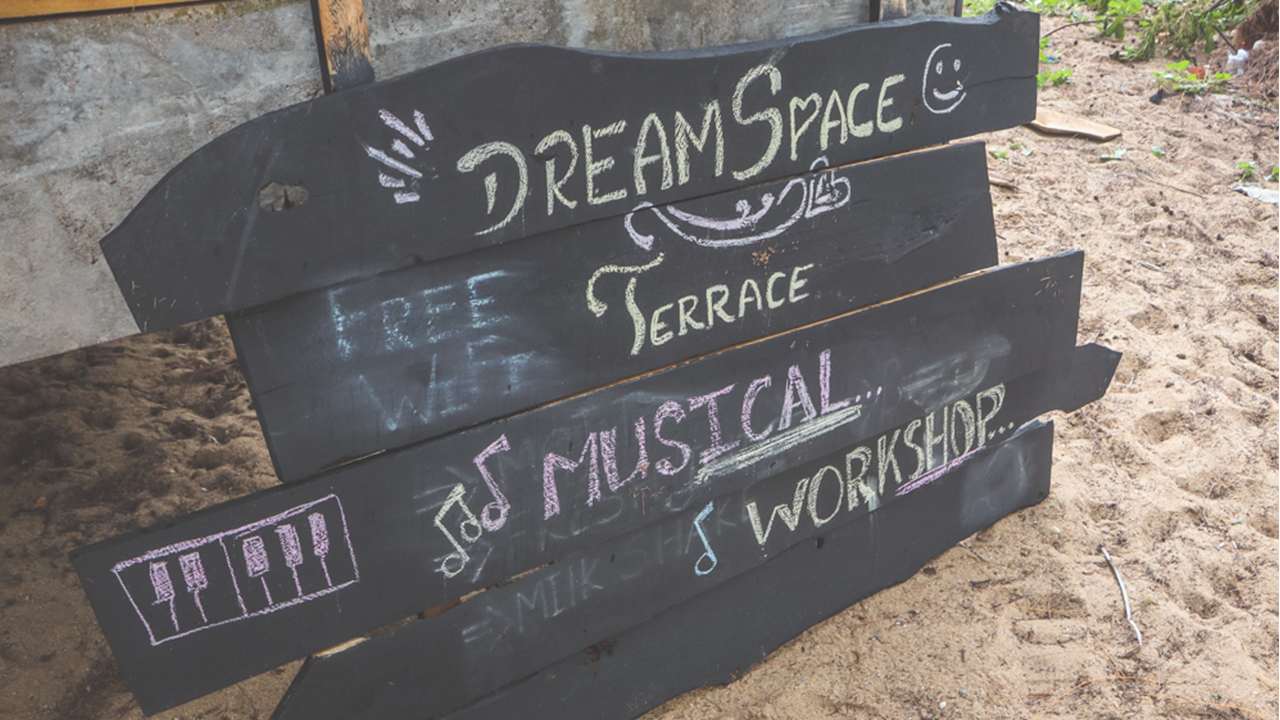 DREAMSPACE
TERRACE
FREE
WIFI
MUSICAL...
WORKSHOP...
=> MILK SHAK